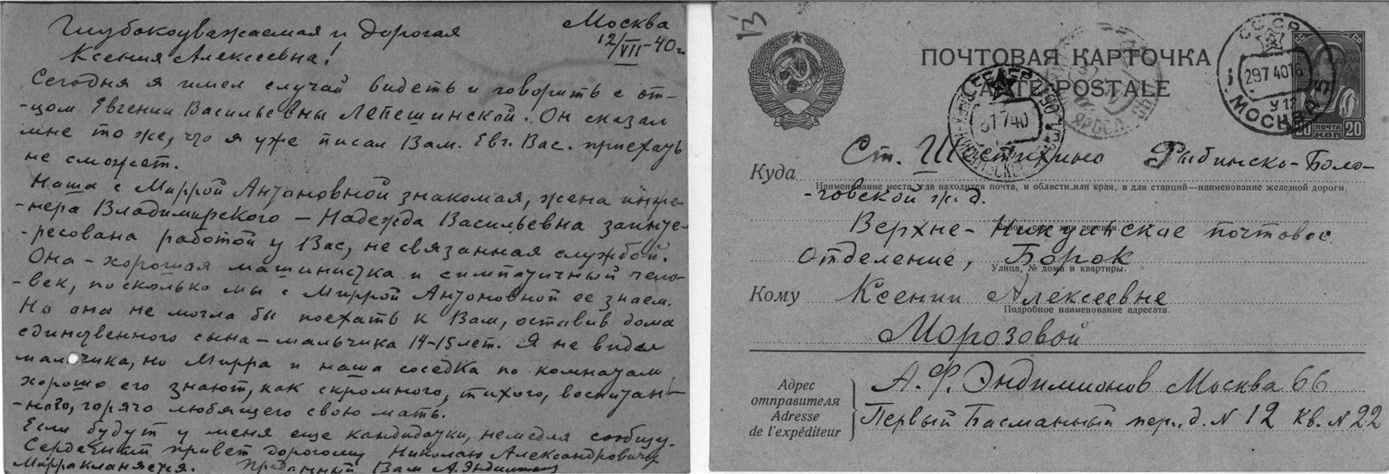 Глубокоуважаемая и дорогая
Москва
12/VII-40 г
Ксения Алексеевна!
Сегодня я имел случай видеть и говорить с от-
-цом Евгении Васильевны Лепешинской. Он сказал
мне то же, что я уже писал Вам. Евг. Вас. приехать
не сможет.
Наша с Миррой Антоновной знакомая, жена инже-
-нера Владимирского — Надежда Васильевна заинте-
-ресована работой у Вас, не связанная службой.
Она - хорошая машинистка и симпатичный чело-
-век, поскольку мы с Миррой Антоновной ее знаем.
Но она не могла бы поехать к Вам, оставив дома
единственного сына - мальчика 14-15 лет. Я не видел
мальчика, но Мирра и наша соседка по комнатам
хорошо его знают, как скромного, тихого, воспитан-
-ного, горячо любящего свою мать.
Если будут у меня еще кандидатки, немедля сообщу.
Сердечный привет дорогому Николаю Александровичу
Мирра кланяется. Преданный Вам А. Эндимионов
13
ПОЧТОВАЯ КАРТОЧКА
CARTE POSTALE
СССР
29 7 40 16
МОСКВА
31 7 40
ЯРОСЛ.
ПОЧТА
20 КОП 20
Куда
Ст. Шестихино Рыбинско-Боло-
Наименование места, где находится почта, и области или края, а для станций—наименование железной дороги.
-говской ж. д.
Верхне-Никульское почтовое
Отделение, Борок
Улица, № дома и квартиры.
Кому
Ксении Алексеевне
Подробное наименование адресата.
Морозовой
Адрес отправителя
Adresse de l'expéditeur
А. Ф. Эндимионов Москва 66
Первый Басманный пер. д. N 12 кв. N 22